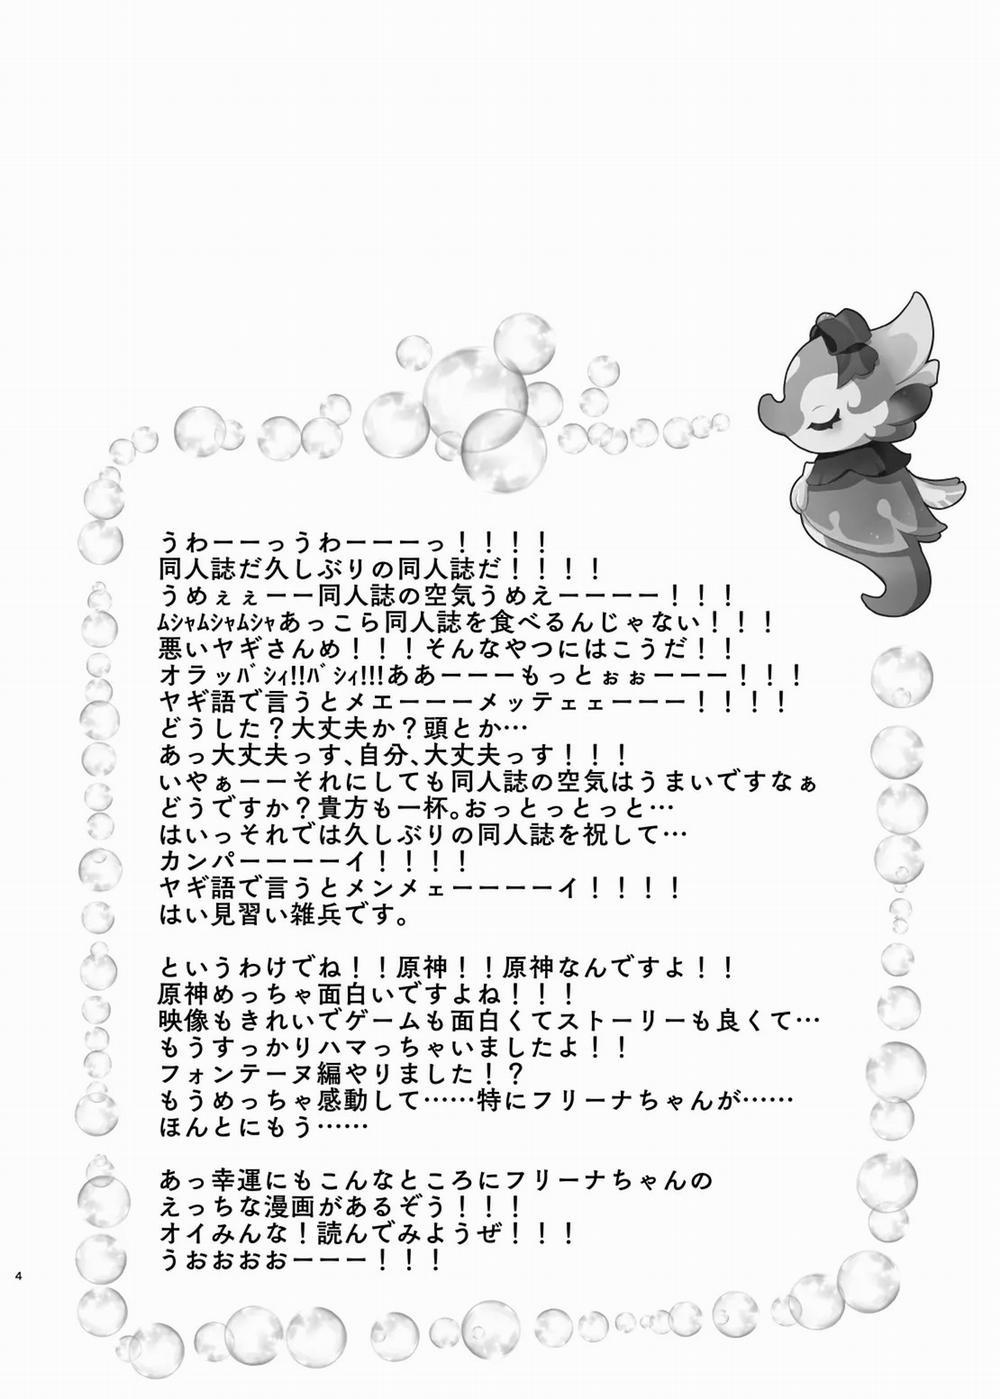 うわーーっうわーーーっ！！！！
同人誌だ久しぶりの同人誌だ！！！！
うめぇぇーー同人誌の空気うめえーーーー！！！
ﾑｼｬﾑｼｬﾑｼｬあっこら同人誌を食べるんじゃない！！！
悪いヤギさんめ！！！そんなやつにはこうだ！！
オラッﾊﾞｼｨ!!ﾊﾞｼｨ!!!ああーーーもっとぉぉーーー！！！
ヤギ語で言うとメエーーーメッテェェーーー！！！！
どうした？大丈夫か？頭とか…
あっ大丈夫っす､自分､大丈夫っす！！！
いやぁーーそれにしても同人誌の空気はうまいですなぁ
どうですか？貴方も一杯｡おっとっとっと…
はいっそれでは久しぶりの同人誌を祝して…
カンパーーーーイ！！！！
ヤギ語で言うとメンメェーーーーイ！！！！
はい見習い雑兵です｡
というわけでね！！原神！！原神なんですよ！！
原神めっちゃ面白いですよね！！！
映像もきれいでゲームも面白くてストーリーも良くて…
もうすっかりハマっちゃいましたよ！！
フォンテーヌ編やりました！？
もうめっちゃ感動して……特にフリーナちゃんが……
ほんとにもう……
あっ幸運にもこんなところにフリーナちゃんの
えっちな漫画があるぞう！！！
オイみんな！読んでみようぜ！！！
うおおおおーーー！！！
4